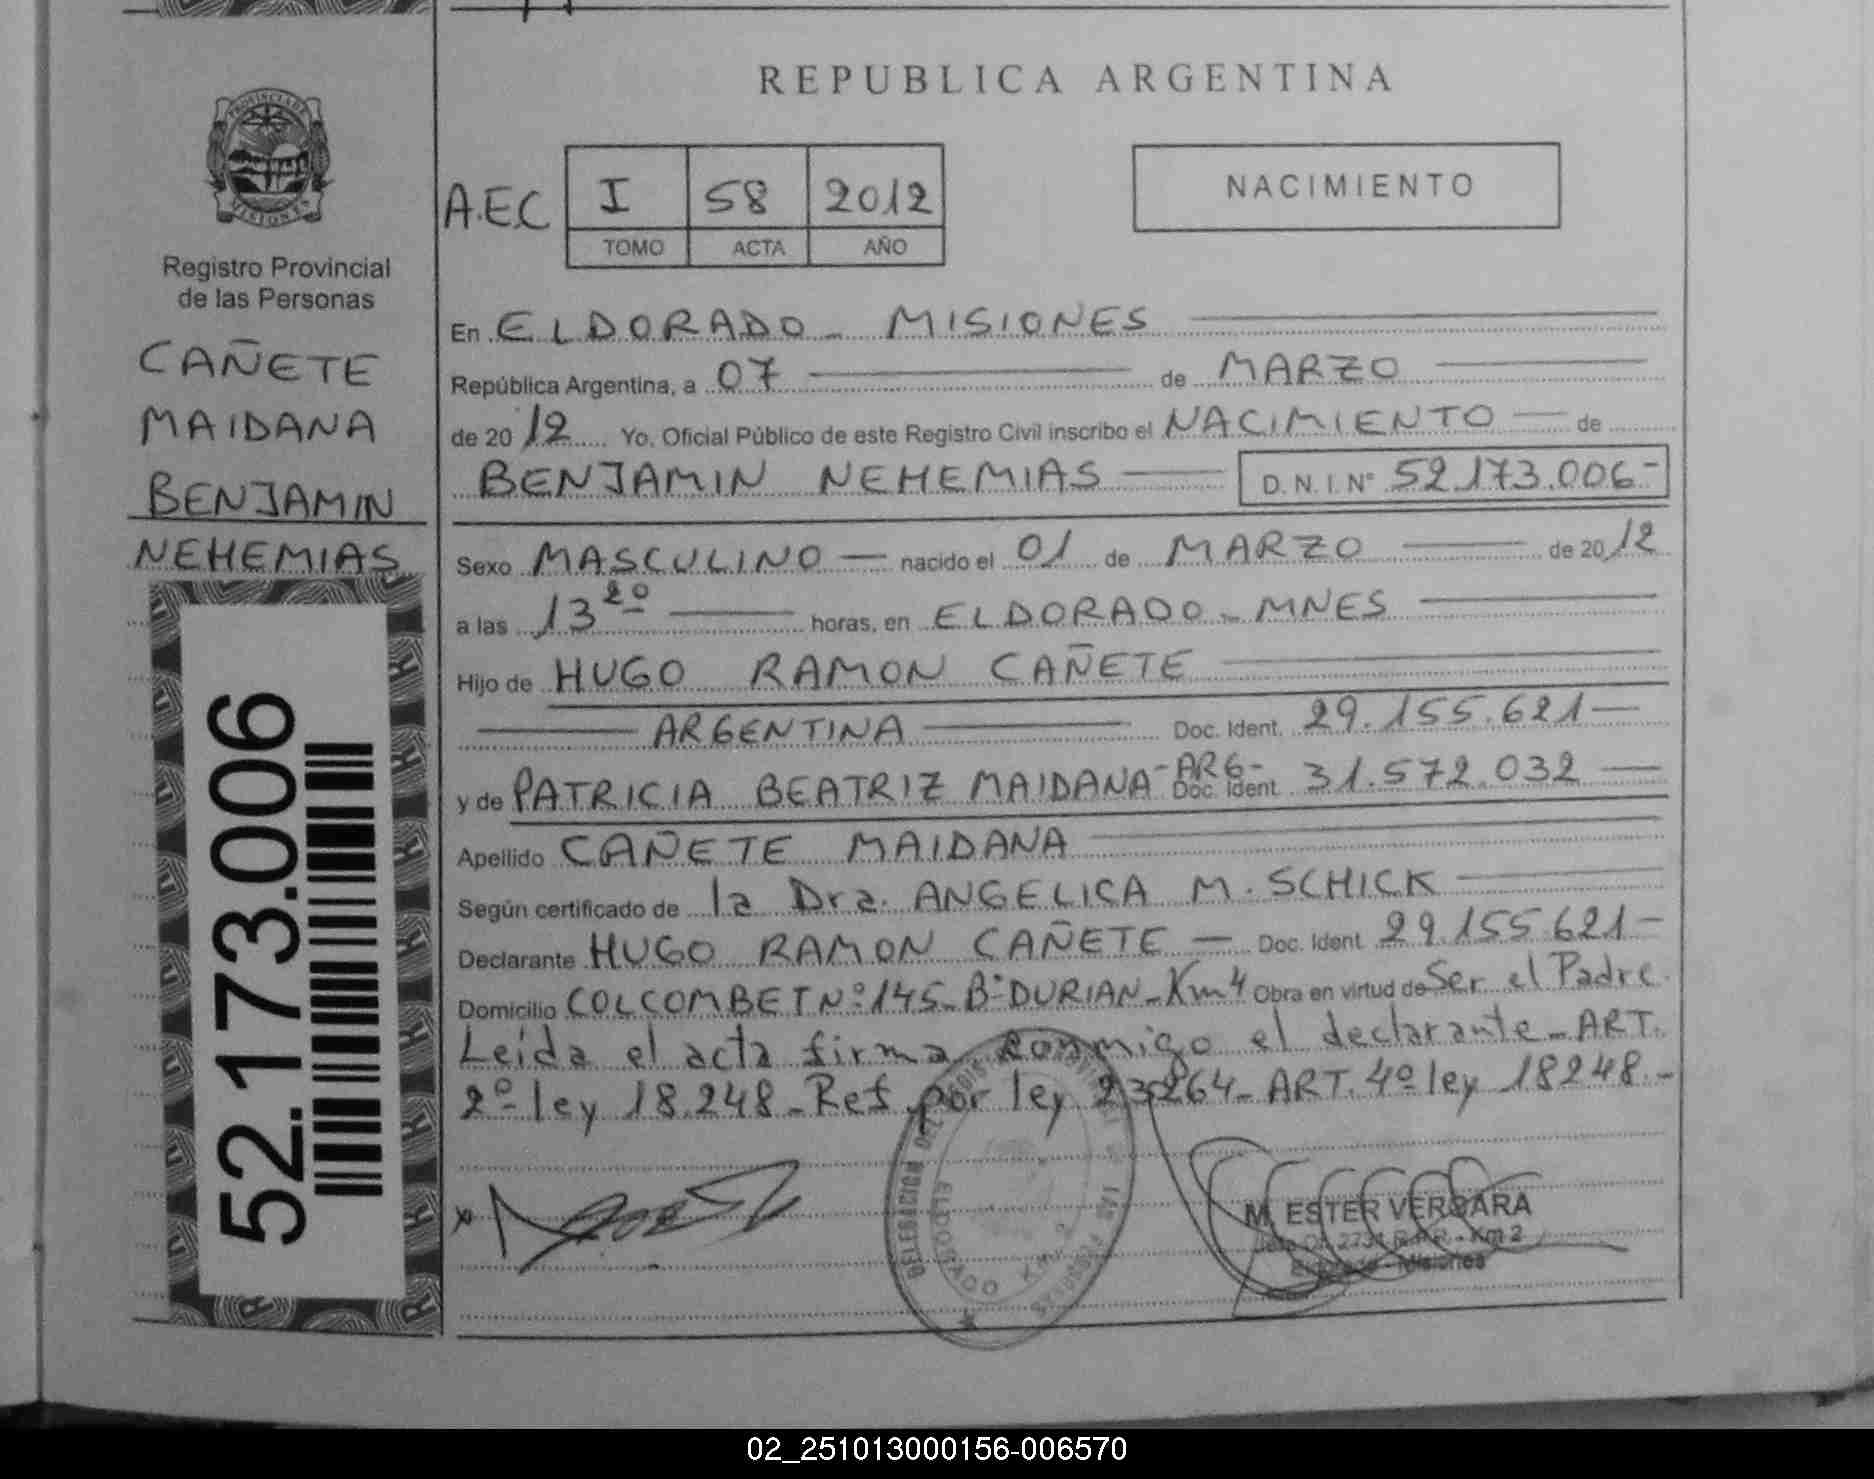 REPUBLICA ARGENTINA
PROVINCIA DE
MISIONES
Registro Provincial
de las Personas
CAÑETE
MAIDANA
BENJAMIN
NEHEMIAS
52.173.006
A.E.C I 58 2012
TOMO ACTA AÑO
NACIMIENTO
En ELDORADO - MISIONES
República Argentina, a 07 de MARZO
de 20 12 Yo, Oficial Público de este Registro Civil inscribo el NACIMIENTO de
BENJAMIN NEHEMIAS D.N.I.Nº 52.173.006-
Sexo MASCULINO nacido el 01 de MARZO de 20 12
a las 13 20 horas, en ELDORADO - MNES
Hijo de HUGO RAMON CAÑETE
ARGENTINA Doc. Ident. 29.155.621
y de PATRICIA BEATRIZ MAIDANA -ARG- Doc. Ident. 31.572.032
Apellido CAÑETE MAIDANA
Según certificado de la Dra. ANGELICA M. SCHICK
Declarante HUGO RAMON CAÑETE Doc. Ident. 29.155.621-
Domicilio COLCOMBET Nº 145 - Bº DURIAN - Km 4 Obra en virtud de Ser el Padre.
Leída el acta firma conmigo el declarante - ART.
2º ley 18.248 - Ref por ley 23264 - ART. 4º ley 18248.-
x
DELEGACION DEL REGISTRO PROVINCIAL DE LAS PERSONAS
ELDORADO KM. 2
M. ESTER VERGARA
Km 2
Eldorado - Misiones
02_251013000156-006570